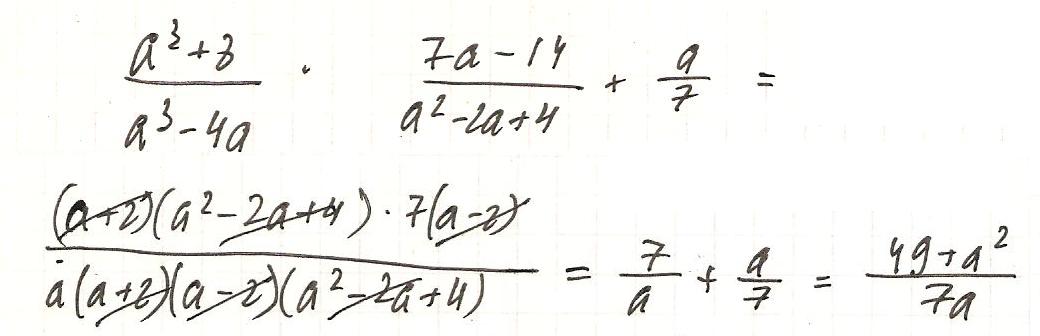 (a³+8)/(a³-4a) · (7a-14)/(a²-2a+4) + a/7 =
((a+2)(a²-2a+4) · 7(a-2))/(a(a+2)(a-2)(a²-2a+4)) = 7/a + a/7 = (49+a²)/(7a)